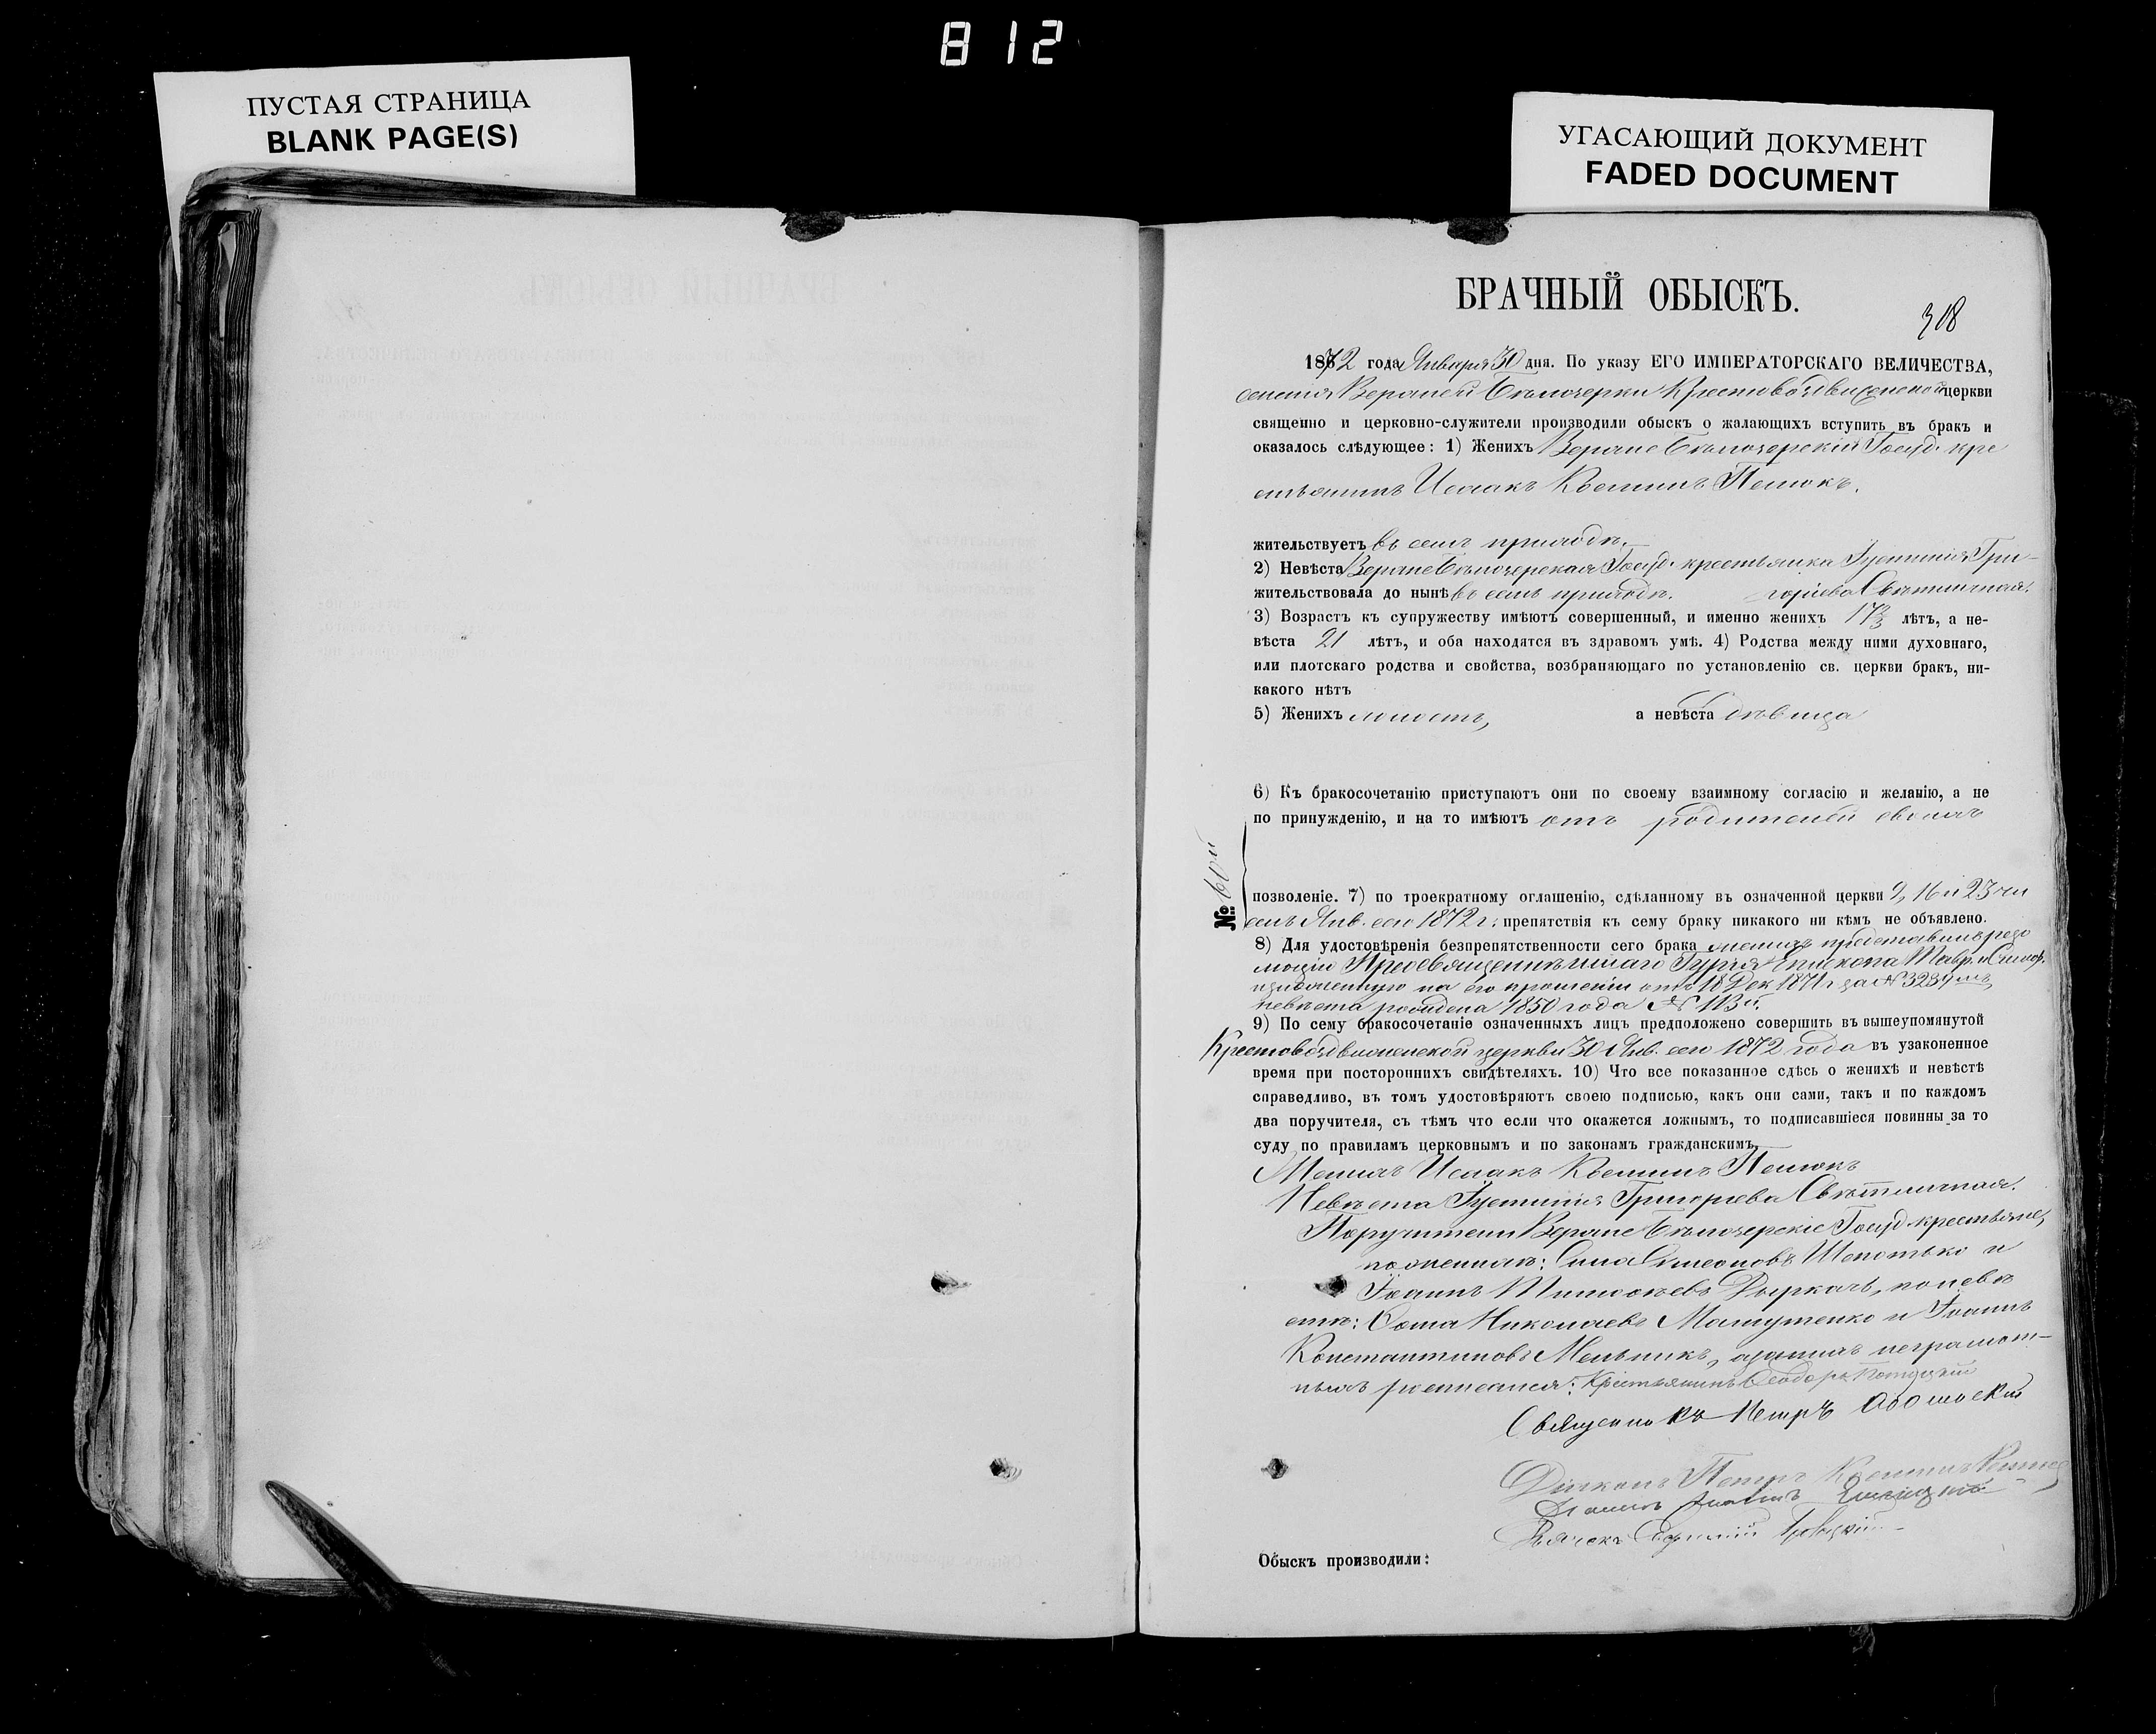 812
ПУСТАЯ СТРАНИЦА
BLANK PAGE(S)
УГАСАЮЩИЙ ДОКУМЕНТ
FADED DOCUMENT
БРАЧНЫЙ ОБЫСКЪ.
308
1872 года Января 30 дня. По указу ЕГО ИМПЕРАТОРСКАГО ВЕЛИЧЕСТВА,
селенія Верхней Бѣлозерки Крестовоздвиженской церкви
священно и церковно-служители производили обыскъ о жалающихъ вступить въ бракъ и
оказалось слѣдующее: 1) Женихъ Верхне Бѣлозерскій Госуд. кре
стьянинъ Исаакъ Косминъ Пелюкъ.
жительствуетъ въ семъ приходѣ.
2) Невѣста Верхне Бѣлозерская Госуд. крестьянка Іустинія Гри-
жительствовала до нынѣ въ семъ приходѣ. горіева Свѣтличная.
3) Возрастъ къ супружеству имѣютъ совершенный, и именно женихъ 17 2/3 лѣтъ, а не-
вѣста 21 лѣтъ, и оба находятся въ здравомъ умѣ. 4) Родства между ними духовнаго,
или плотскаго родства и свойства, возбраняющаго по установленію св. церкви бракъ, ни-
какого нѣтъ
5) Женихъ холостъ, а невѣста дѣвица
6) Къ бракосочетанію приступаютъ они по своему взаимному согласію и желанію, а не
по принужденію, и на то имѣютъ отъ родителей своихъ
№ 60й
позволеніе. 7) по троекратному оглашенію, сдѣланному въ означенной церкви 9, 16 и 23 чи
селъ Янв. сего 1872 г. препятствія къ сему браку никакого ни кѣмъ не объявлено.
8) Для удостовѣренія безпрепятственности сего брака женихъ представилъ резо
люцію Преосвященнѣйшаго Гурія Епископа Тавр. и Симфер.
изложенную на его прошеніи отъ 18 Дек 1871 г за №
невѣста рождена 1850 года № 113й.
9) По сему бракосочетаніе означенныхъ лицъ предположено совершить въ вышеупомянутой
Крестовоздвиженской церкви 30 Янв. сего 1872 года въ узаконенное
время при постороннихъ свидѣтеляхъ. 10) Что все показанное сдѣсь о женихѣ и невѣстѣ
справедливо, въ томъ удостовѣряютъ своею подписью, какъ они сами, такъ и по каждомъ
два поручителя, съ тѣмъ что если что окажется ложнымъ, то подписавшіеся повинны за то
суду по правиламъ церковнымъ и по законамъ гражданскимъ.
Женихъ Исаакъ Косминъ Пелюкъ
Невѣста Іустинія Григоріева Свѣтличная.
Поручители Верхне Бѣлозерскіе Госуд. крестьяне,
по женихѣ: Сила Симеоновъ Шепотько и
Іоаннъ Тимоѳеевъ Дыркачъ, по невѣ
стѣ: Ѳома Николаевъ Мащутенко и Іоаннъ
Константиновъ Мельникъ, а за нихъ неграмот-
ныхъ росписался: Крестьянинъ Ѳеодоръ
Священникъ Петръ
Діаконъ Петръ Косминъ
Дьячекъ
Обыскъ производили: